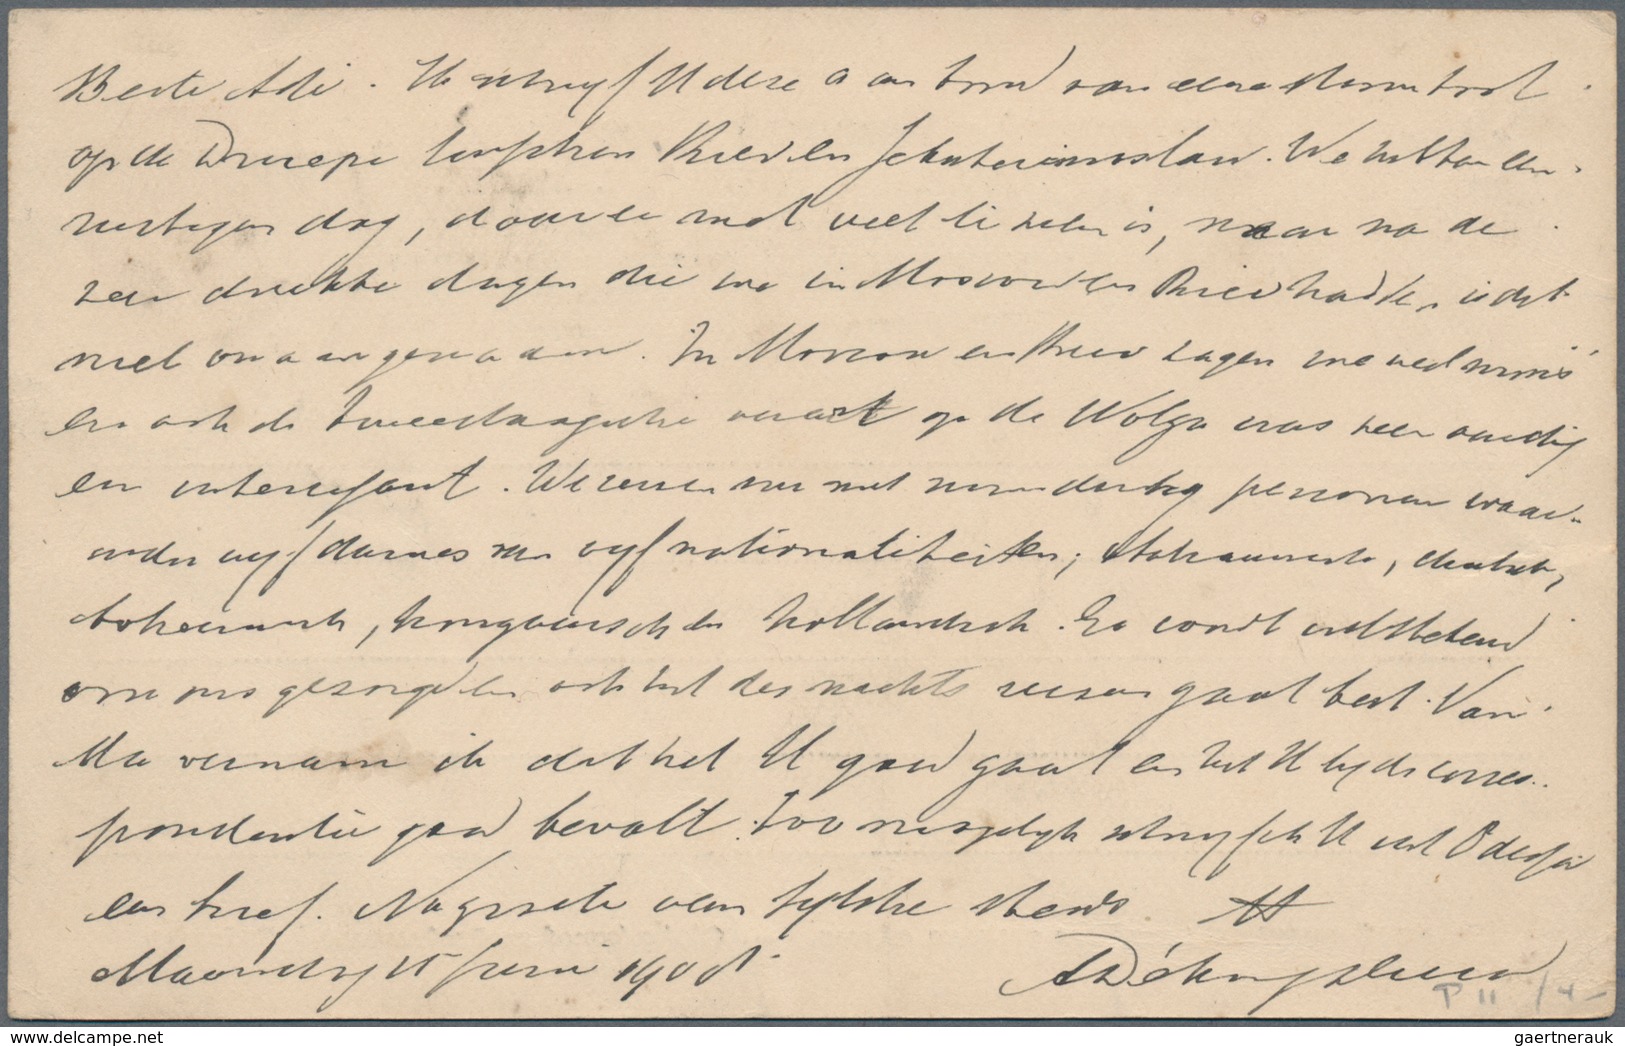 Beste Adi. Ik schryf U deze aan boord van eene stoomboot
op de Dnieper tusschen Kiew en Jekaterinoslaw. We zitten een
rustigen dag, daar er niet veel te zien is, maar na de
zeer drukke dagen die we in Moscou en Kiew hadden, is dit
niet onaangenaam. In Moscou en Kiew zagen we veel moois
en ook de tweedaagsche vaart op de Wolga was zeer aardig
en interessant. We reizen nu met personen waar-
onder vyf dames van vyf nationaliteiten; duitsch,
boheemsch, hongaarsch en hollandsch. Er wordt uitstekend
om ons gezorgd en ook het des nachts reizen gaat best. Van
Ma vernam ik dat het U goed gaat en dat U by de corres-
pondentie goed bevalt. Zoo mogelyk schryf ik U uit Odessa
een brief. Na groete van tt
Maandag 15 Juni 1908
P 11 /4-
gaertnerauk